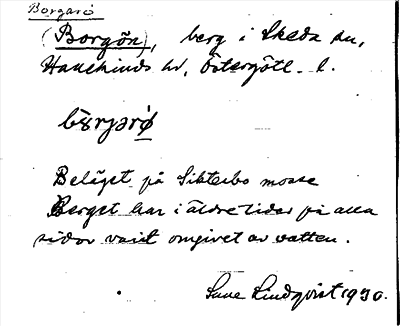 Borgarö
(Borgön), berg i Skeda sn,
Hanekinds hd, Östergötl. l.
Beläget på Sikterbo mosse
Berget har i äldre tider på alla
sidor varit omgivet av vatten.
Sune Lindqvist 1930.